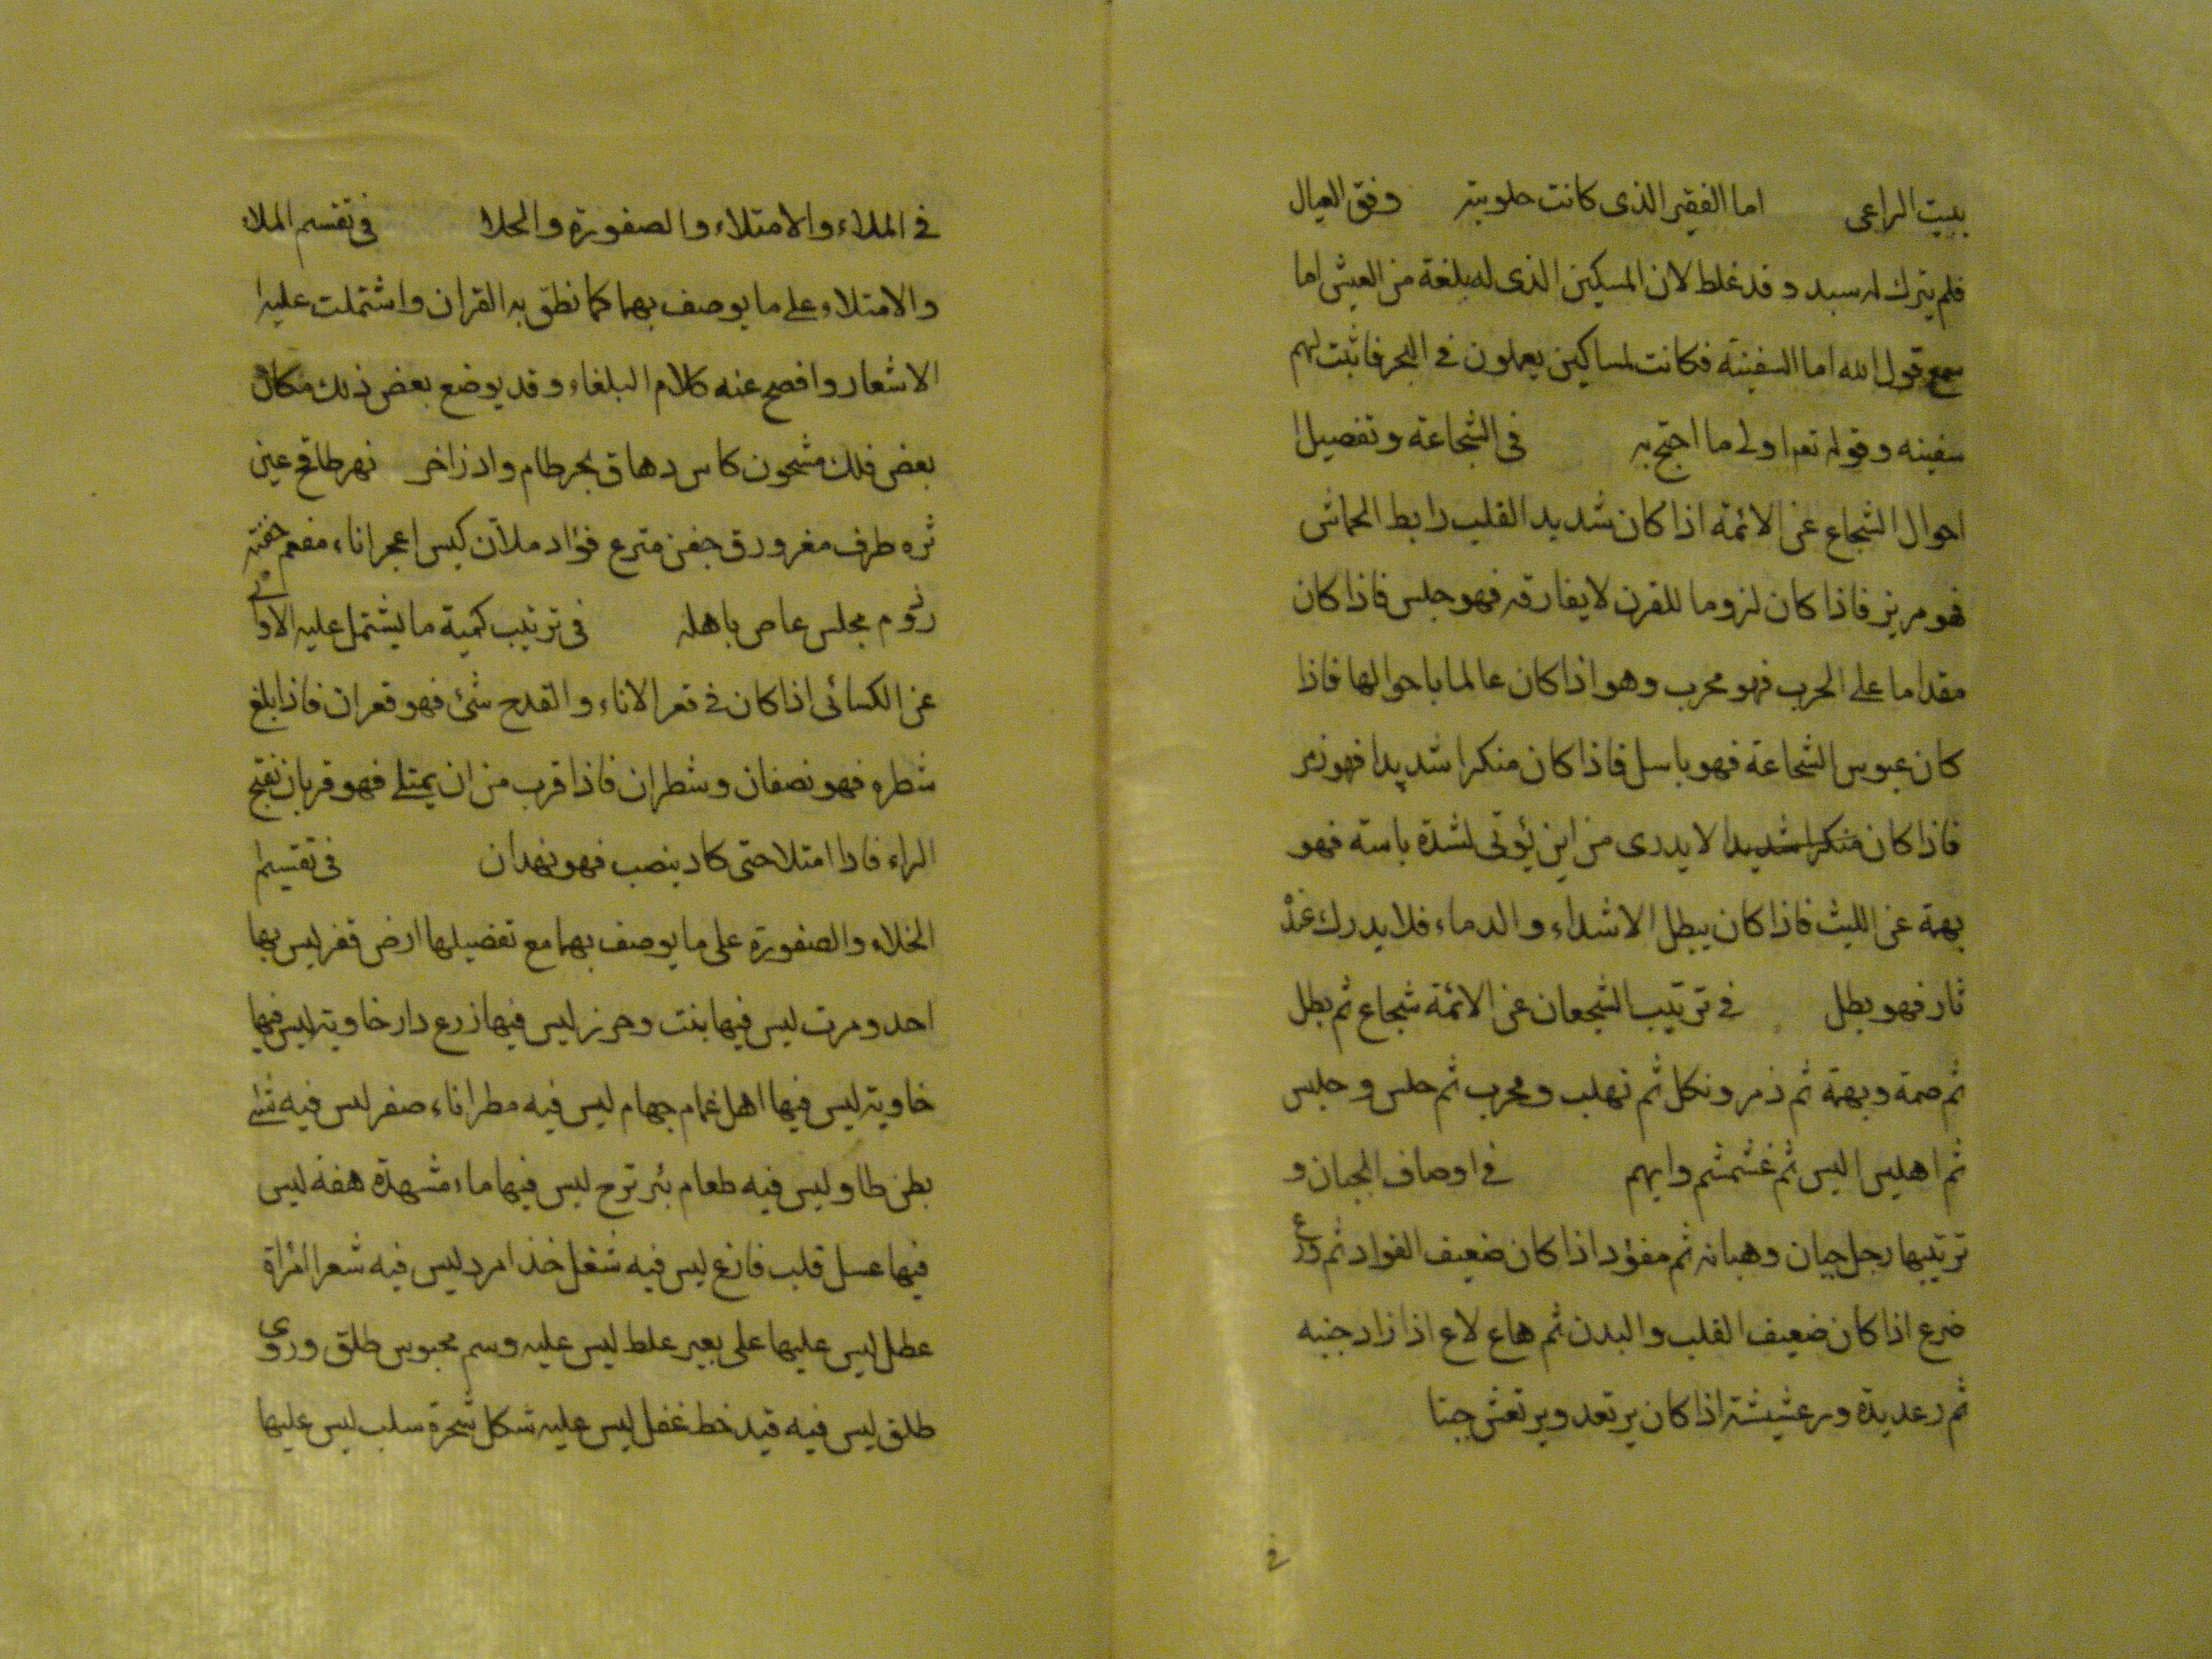 ببيت الراعى اما الفقير الذى كانت حلوبته وفق العيال
فلم يترك له سبد وقد غلط لان المسكين الذى له بلغة من العيش اما
سمع قول الله اما السفينة فكانت لمساكين يعملون فى البحر فاثبت لهم
سفينه وقوله تعه اولى ما احتج به فى الشجاعة وتفصيل
احوال الشجاع عن الائمة اذا كان شديد القلب رابط الجاش
فهو مرير فاذا كان لزوما للقرن لا يفارقه فهو حلس فاذا كان
مقداما على الحرب فهو محرب وهو اذا كان عالما باحوالها فاذا
كان عبوس الشجاعة فهو باسل فاذا كان منكرا شديدا فهو ذمر
فاذا كان منكرا شديدا لا يدرى من اين يؤتى لشدة باسه فهو
بهمة عن الليث فاذا كان يبطل الاشداء والدماء فلا يدرك عنده
ثار فهو بطل فى ترتيب الشجعان عن الائمة شجاع ثم بطل
ثم صمة وبهمة ثم ذمر ونكل ثم نهلب ومحرب ثم حلس وحلبس
ثم اهليس اليس ثم غشمشم وايهم فى اوصاف الجبان و
ترتيبها رجل جبان وهبانه ثم مفؤد اذا كان ضعيف الفواد ثم ورع
ضرع اذا كان ضعيف القلب والبدن ثم هاع لاع اذا زاد جنبه
ثم رعديدة ورعشيشة اذا كان يرتعد ويرتعش جبنا
فى
فى الملاء والامتلاء والصفورة والخلا فى تقسيم الملاء
والامتلاء على ما يوصف بهما كما نطق به القران واشتملت عليه
الاشعار وافصح عنه كلام البلغاء وقد يوضع بعض ذلك مكان
بعض فلك مشحون كاس دهاق بحر طام واد زاخر نهر طافح عين
ثره طرف مغرورق جفن مترع فؤاد ملآن كيس اعجر اناء مفعم جفنه
رذوم مجلس عاص باهله فى ترتيب كمية ما يشتمل عليه الاوانى
عن الكسائى اذا كان فى قعر الاناء والقدح شئ فهو قعران فاذا بلغ
شطره فهو نصفان وشطران فاذا قرب من ان يمتلى فهو قربان بفتح
الراء فاذا امتلا حتى كاد ينصب فهو نهدان فى تقسيم
الخلاء والصفورة على ما يوصف بهما مع تفصيلها ارض قفر ليس بها
احد ومرت ليس فيها بنت وجرز ليس فيها زرع دار خاوية ليس فيها
خاوية ليس فيها اهل غمام جهام ليس فيه مطر اناء صفر ليس فيه شئ
بطن طاو ليس فيه طعام بئر نزح ليس فيها ماء مشهدة هفة ليس
فيها عسل قلب فارغ ليس فيه شغل خذ امرد ليس فيه شعر امراة
عطل ليس عليها على بعير علط ليس عليه وسم محبوس طلق وروى
طلق ليس فيه قيد خط غفل ليس عليه شكل شجرة سلب ليس عليها